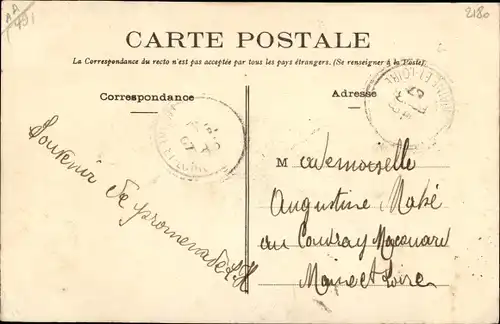 AA
491
2180
CARTE POSTALE
La Correspondance du recto n'est pas acceptée par tous les pays étrangers. (Se renseigner à la Poste).
Correspondance
Adresse
ET-LOIRE
Souvenir
de promenade
Mademoiselle
Augustine Mahé
au Coudray Macouard
Maine et Loire